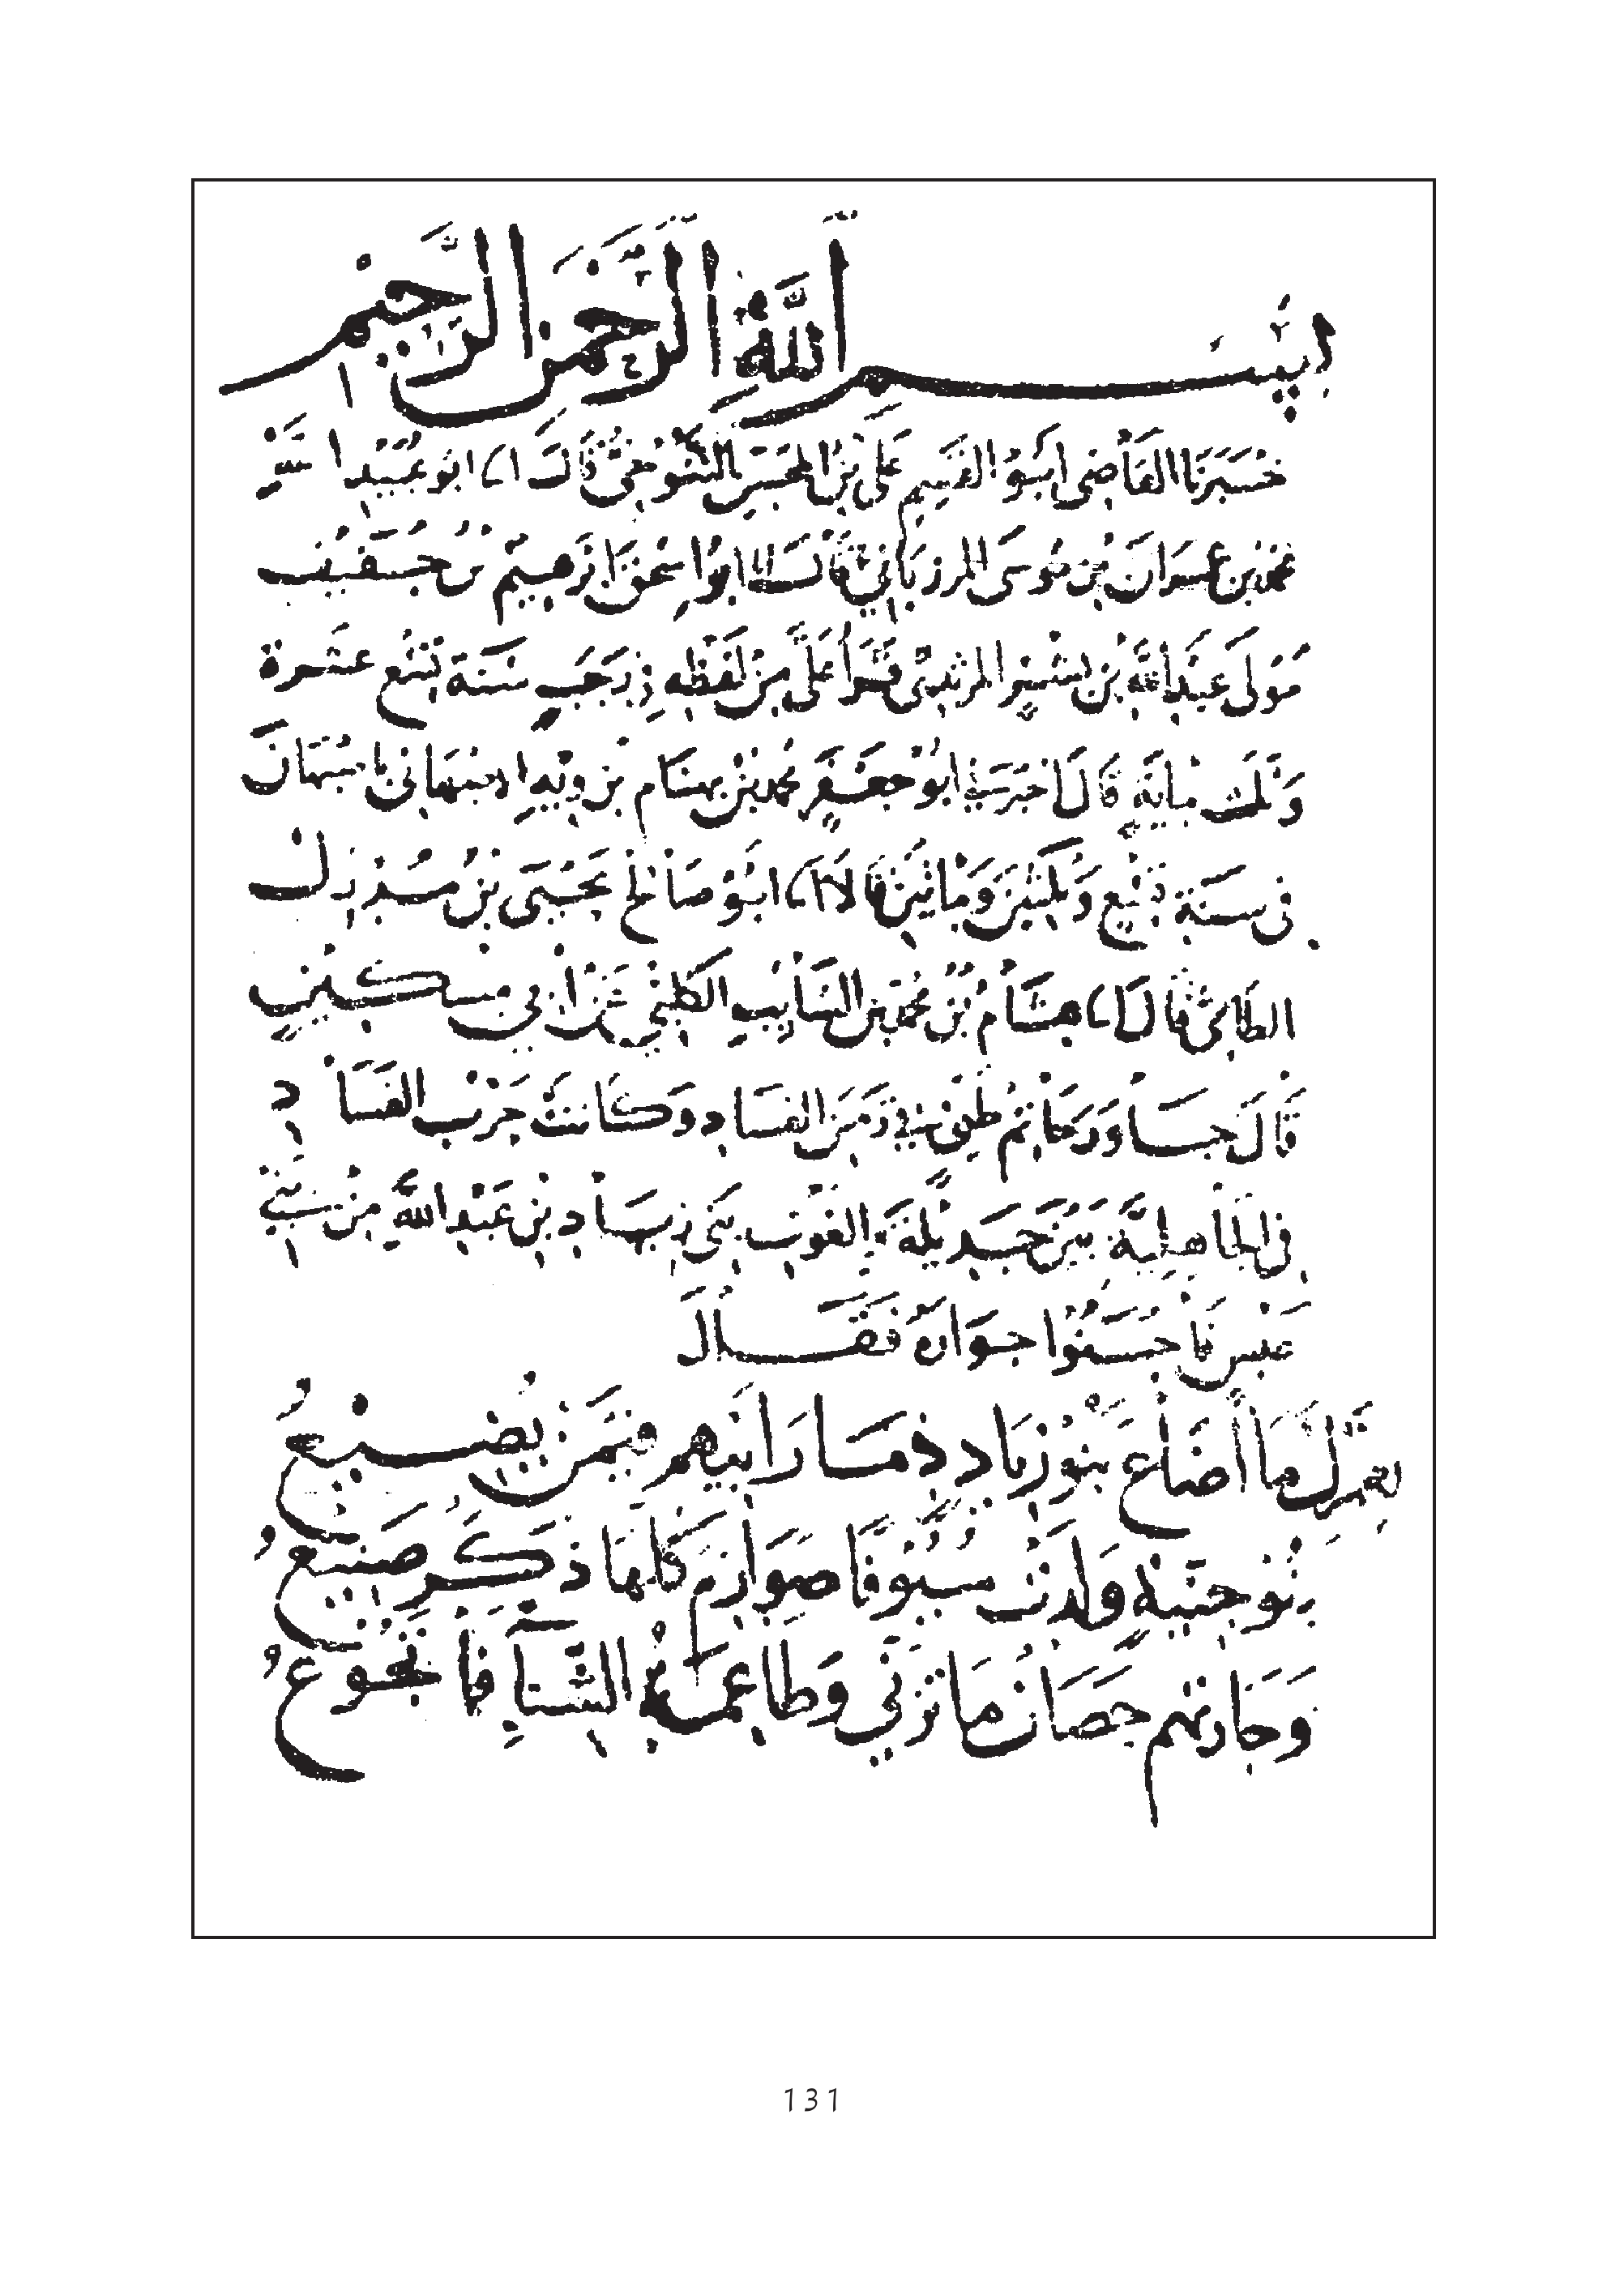 بسم الله الرحمن الرحيم
خبرنا القاضي ابو القسم علي بن المحسن التنوخي قال ابو عبيد الله
محمد بن عمران بن موسى المرزباني قال ابو اسحق ابرهيم بن
مولى عبد الله بن بشير المرثدي قراءة علي من لفظه في رجب سنة تسع عشرة
وثلث مائة قال اخبرني ابو جعفر محمد بن بن رويه الاصبهاني باصبهان
في سنة تسع وثلثين ومائتين قالا ابو صالح يحيى بن مدرك
الطائي قال هشام بن محمد بن السائب الكلبي عن ابي مسكين
قال جاور حاتم طيئ في زمن الفساد وكانت حرب الفساد
في الجاهلية بين جديلة والغوث بني زياد بن عبد الله من بني
عبس فاحسنوا جواره فقال
لعمرك ما أضاع بنو زياد ذمار ابيهم فيمن يضيع
بنو جنية ولدت سيوفا صوارم كلها ذكر صنيع
وجارتهم حصان ما تزني وطاعمة الشتاء فما تجوع
131